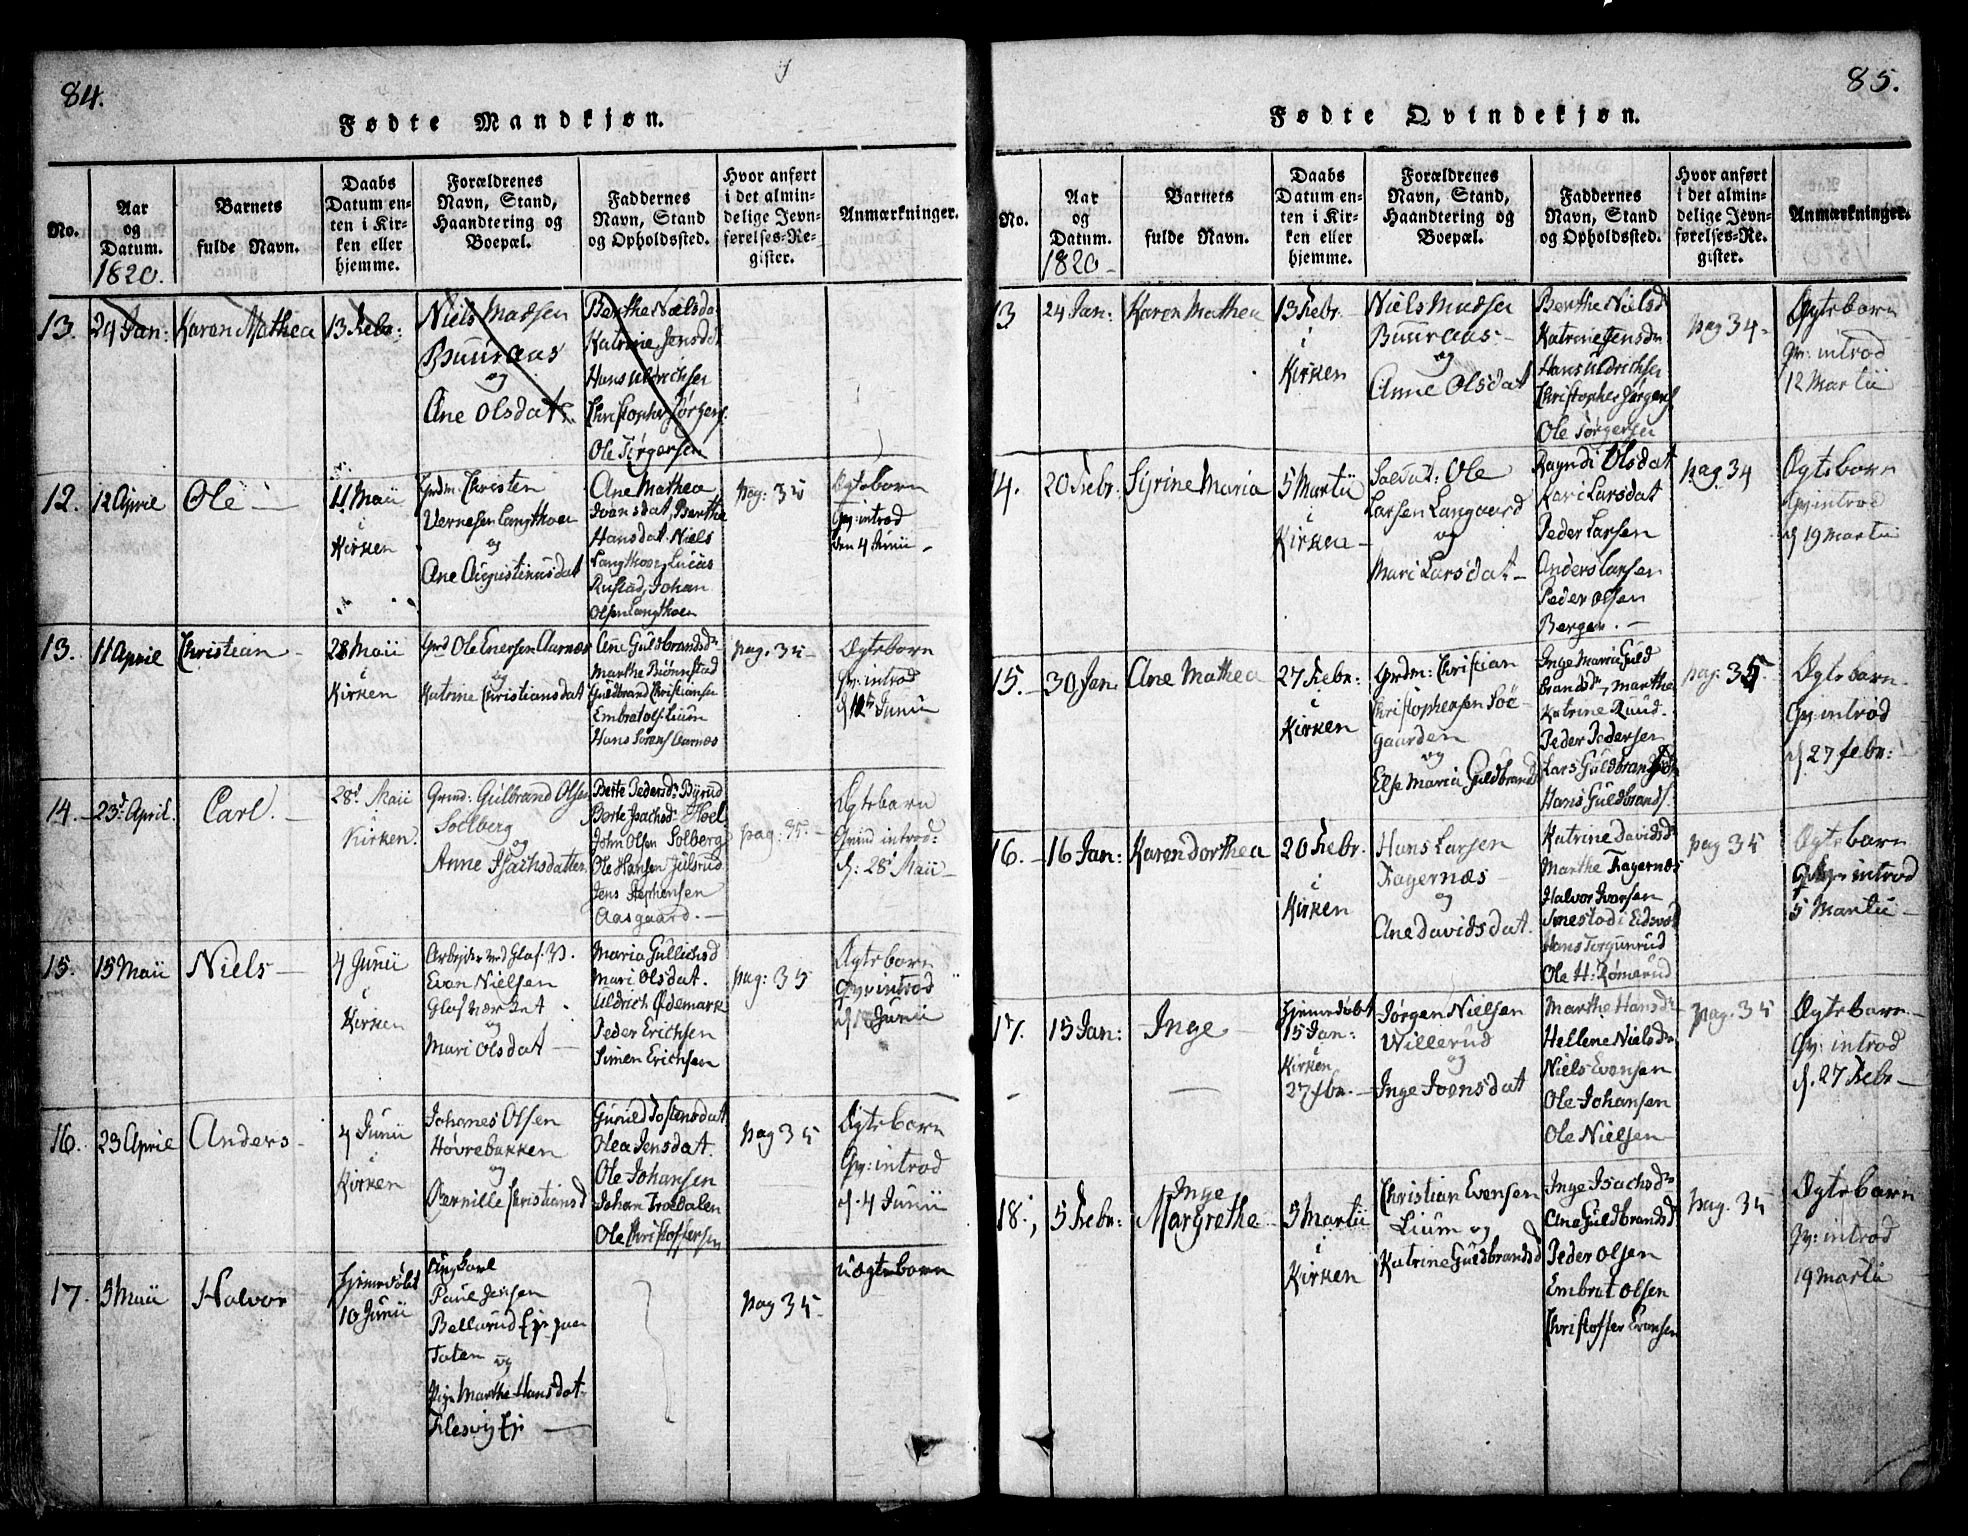 84.
Fødte Mandkjøn.
No.
Aar
og
Datum.
1820.
Barnets
fulde Navn.
Daabs
Datum en-
ten i Kir-
ken eller
hjemme.
Forældrenes
Navn, Stand,
Haandtering og
Boepæl.
Faddernes
Navn, Stand
og Opholdssted.
Hvor anført
i det almin-
delige Jevn-
førelses-Re-
gister.
Anmærkninger.
13.
24 Jan:
Karen Mathea
13 Febr:
Niels Madsen
Buuraas
og
Ane Olsdat
Berthe Nielsda
Katrine Jensdt
Hans Uldrichsen
Christopher Jørgens.
Ole Jørgersen
12.
12 Aprile
Ole
11 Maii
i
Kirken
Grdm. Christen
Vernesen Langthoen
og
Ane Augustinusdat
Ane Mathea
Ivensdat, Berthe
Hansdat. Niels
Langthoen, Lucas
Rustad, Johan
Olsen Langthoen
pag: 35
Ægtebarn
Qv: introd
den 4 Junii
13.
11 Aprile
Christian
28 Maii
i
Kirken
Grd Ole Enersen Aarnæs
og
Katrine Christiansdat
Ane Guldbrandsd
Marthe Biønnstad
Guldbrand Christianse
Embrat Olf: Lium
Hans Sørens Aarnæs
pag. 35
Ægtebarn
Qv: introd
d 12 Junii
14.
23d April.
Carl.
28d Maii
i
Kirken.
Grmd: Gulbrand Olsen
Soelberg
og
Anne Isachsdatter
Berte Pedersd: Byrud
Berte Isachsd: Hoel
John Olsen Solberg
Ole Hansen Julsrud
Jens Stephensen
Aasgaard.
pag: 35.
Ægtebarn
Qvind introd:
d: 28d Maii
15.
15 Maii
Niels
4 Junii
i
Kirken
Arbeyder ved Glas: V.
Even Nielsen
Glasværket
og
Mari Olsdat
Maria Gullichsd
Mari Olsdat.
Uldrich Ødemark
Peder Erichsen
Simen Erichsen
pag: 35
Ægtebarn
Qv: introd
Junii
16.
23 Aprile
Anders
4 Junii
i
Kirken
Johanes Olsen
Høvrebakken
og
Pernille Christiansd
Guruld Tostensdat
Olea Jensdat.
Ole Johansen
Johan Troldalen
Ole Christoffersen
pag 35
Ægtebarn
Qv: introd
d. 4 Junii
17.
3 Maii
Halvor
hjemedøbt
10 Junii
Ung karl
Paul Jensen
Bellerud Ejr paa
Toten
og
Pige Marthe Hansdat
pag 35
uægtebarn
85.
Fødte Qvindekjøn.
No.
Aar
og
Datum.
1820
Barnets
fulde Navn.
Daabs
Datum en-
ten i Kir-
ken eller
hjemme.
Forældrenes
Navn, Stand,
Haandtering og
Boepæl.
Faddernes
Navn, Stand
og Opholdssted.
Hvor anført
i det almin-
delige Jevn-
førelses-Re-
gister.
Anmærkninger.
13
24 Jan:
Karen Mathea
13 Febr.
i
Kirken
Niels Madsen
Buuraas
og
Anne Olsdat
Berthe Nielsd
Katrine Jensd
Hans Uldrichsen
Christopher Jørgens
Ole Jørgersen
pag 34
Ægtebarn
Qv: introd
12 Martii
14.
20 Febr.
Syrine Maria
5 Martii
i
Kirken
Soldat: Ole
Larsen Langaard
og
Mari Larsdat
Ragndi Olsdat
Kari Larsdat
Peder Larsen
Anders Larsen
Peder Olsen
Berger.
pag. 34
Ægtebarn
Qv: introd
d 19 Martii
15.
30 Jan.
Ane Mathea
27 Febr:
i
Kirken
Grdm: Christian
Christophersen Soe-
gaarden
og
Else Maria Guldbrands
Inge Maria Guld
brandsd, Marthe
Katrine Ruud.
Peder Pedersen
Lars Guldbrands
Hans Guldbrands.
pag. 35.
Ægtebarn
Qv: introd
d. 27 febr:
16.
16 Jan:
Karen dorthea
20 Febr.
i
Kirken
Hans Larsen
Fagernæs
og
Ane Davidsdat.
Katrine Davidsd
Marthe Fagernæs
Halvor Iversen
Smestad i Eidsvol
Hans Torgunrud
Ole H: Rømerud
pag 35
Ægtebarn
introd
5 Martii
17.
15 Jan:
Inge
hjemedøbt
15 Jan:
i
Kirken
27 fbr.
Jørgen Nielsen
Willerud
og
Inge Ivensdat
Marthe Hansd
Hellene Nielsd
Niels Evensen
Ole Johansen
Ole Nielsen
pag. 35
Ægtebarn
Qv: introd
d. 27 Febr
18.
5 Febr:
Inge
Margrethe
5 Martii
i
Kirken
Christian Evensen
Lium og
Katrine Guldbrandsd
Inge Isachsd
Ane Guldbrandsd
Peder Olsen
Embrat Olsen
Christoffer Evensen
pag. 35
Ægtebarn
Qv: introd
19 Martii